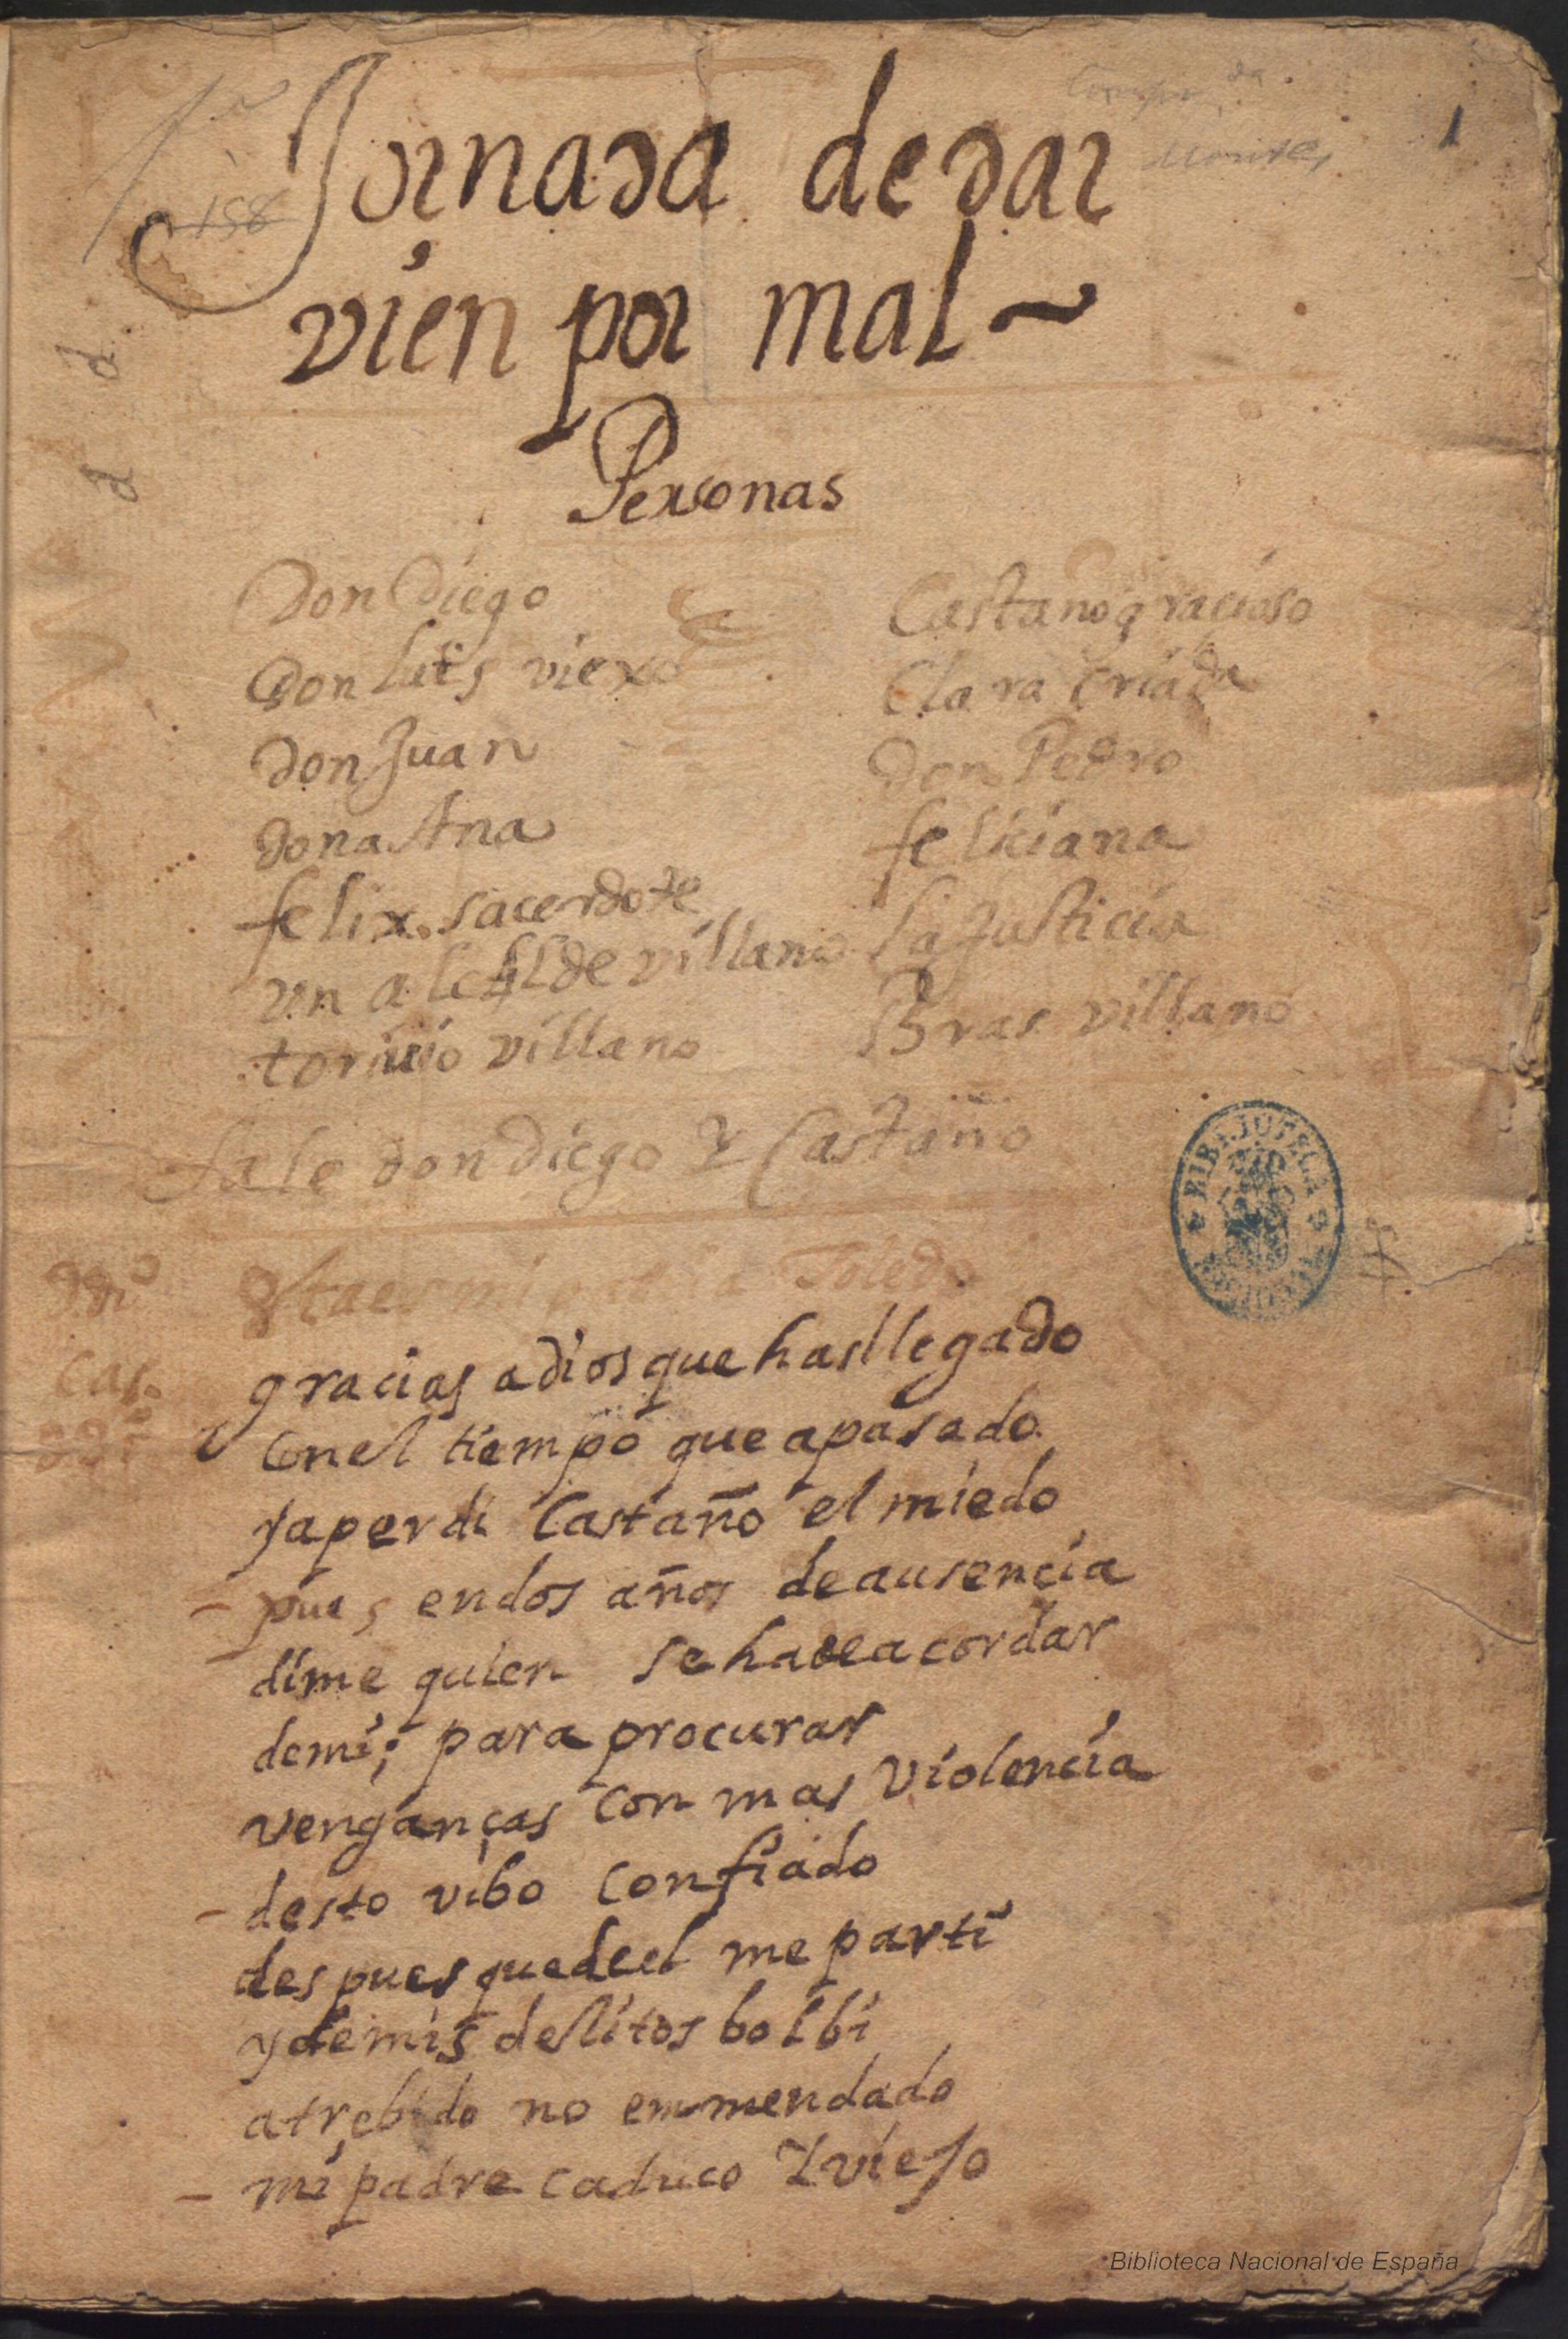 1
1ª Jornada de dar
158
vien por mal
Personas
Don Diego
Castaño gracioso
Don luis viexo
Clara criada
Don Juan
Don Pedro
Dona Ana
feliciana
felix sacerdote
la Justicia
un alcalde villano
Bras villano
torivio villano
Sale don Diego Y Castaño
D. diº Esta es mi patria Toledo
Cas. gracias a Dios que has llegado
D. diº Con el tiempo que a pasado
ya perdi Castaño el miedo
pues en dos años de ausencia
dime quien se ha de acordar
de mi; para procurar
venganças con mas violencia
desto vibo confiado
despues que deel me parti
y de mis delitos bolbi
atrebido no emmendado
mi padre caduco Y viejo
BIBLIOTECA NACIONAL
Biblioteca Nacional de España